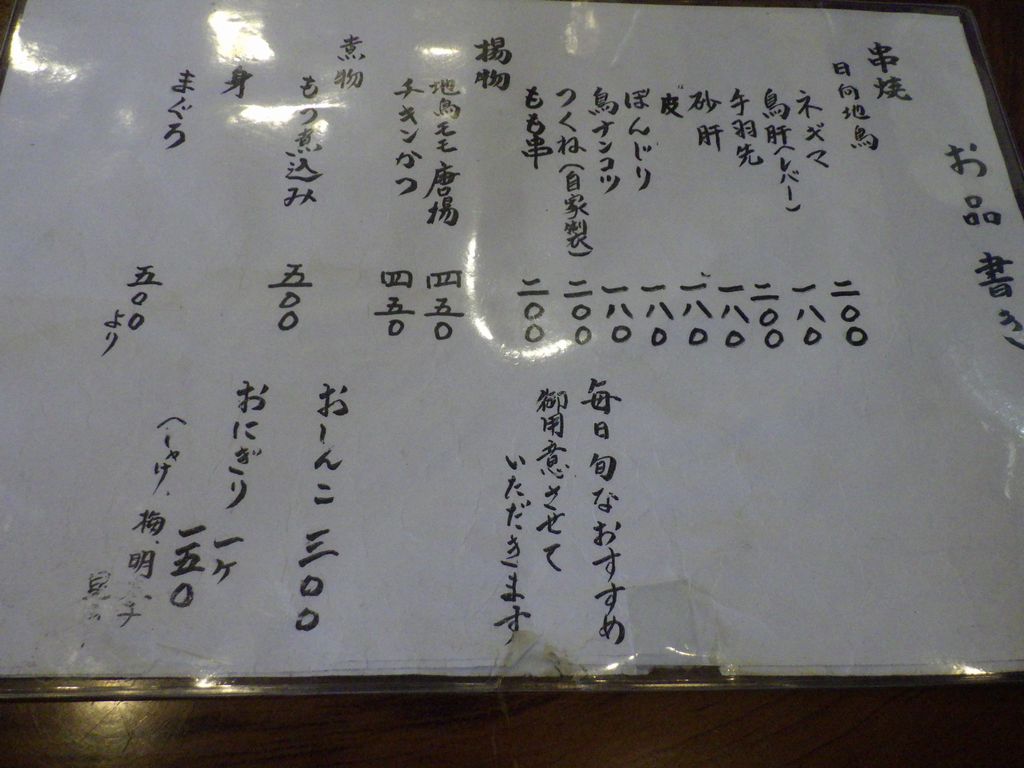 お品書き
串焼
日向地鳥 二〇〇
ネギマ 一八〇
鳥肝(レバー) 二〇〇
手羽先 一八〇
砂肝 一八〇
皮 一八〇
ぼんじり 一八〇
鳥ナンコツ 二〇〇
つくね(自家製) 二〇〇
もも串
揚物
地鳥モモ唐揚 四五〇
チキンかつ 四五〇
煮物
もつ煮込み 五〇〇
身
まぐろ 五〇〇より
毎日旬なおすすめ
御用意させて
いただきます
おしんこ 三〇〇
おにぎり 一ケ
一五〇
(しゃけ、梅、明